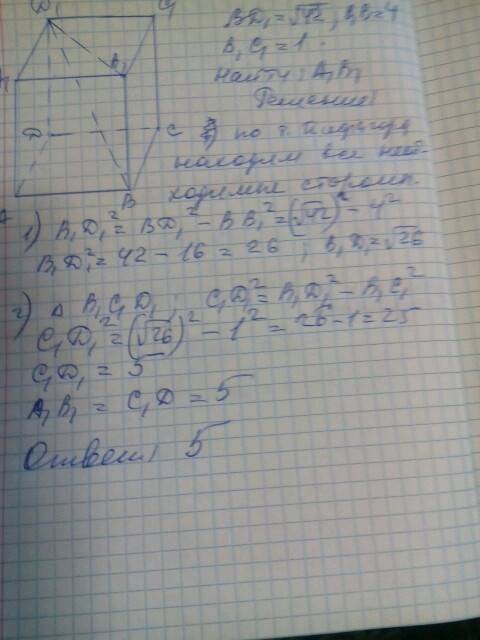 D₁ C₁
BD₁ = √42, B₁B = 4
B₁C₁ = 1.
B₁
Найти: A₁B₁
Решение:
D C
по т. Пифагора
находим все необ-
ходимые стороны.
A B
1) B₁D₁² = BD₁² - BB₁² = (√42)² - 4²
B₁D₁² = 42 - 16 = 26 ; B₁D₁ = √26
2) Δ B₁C₁D₁ ; C₁D₁² = B₁D₁² - B₁C₁²
C₁D₁² = (√26)² - 1² = 26 - 1 = 25
C₁D₁ = 5
A₁B₁ = C₁D = 5
Ответ: 5